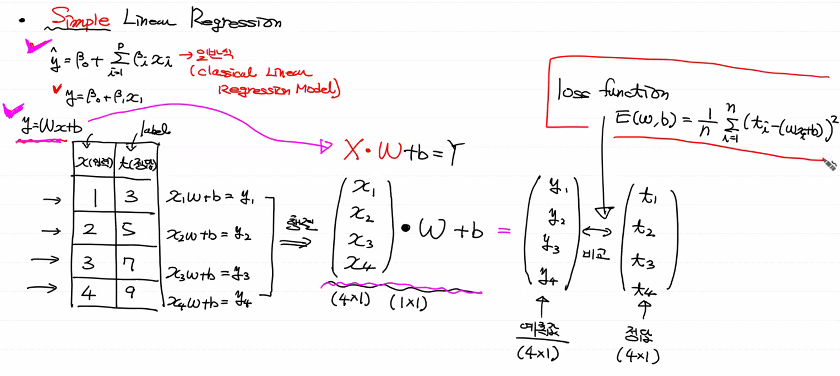 • Simple Linear Regression
ŷ = β₀ + Σᵢ₌₁ᵖ βᵢxᵢ → 일반식
(Classical Linear
Regression Model)
y = β₀ + β₁x₁
y = Wx+b
label
x(입력) t(정답)
1 3
2 5
3 7
4 9
x₁w+b = y₁
x₂w+b = y₂
x₃w+b = y₃
x₄w+b = y₄
행렬
⇒
X•W+b = Y
(x₁ x₂ x₃ x₄) • W + b = (y₁ y₂ y₃ y₄) ↔ (t₁ t₂ t₃ t₄)
비교
(4×1) (1×1)
예측값
(4×1)
정답
(4×1)
loss function
E(w,b) = 1/n Σᵢ₌₁ⁿ (tᵢ-(wxᵢ+b))²